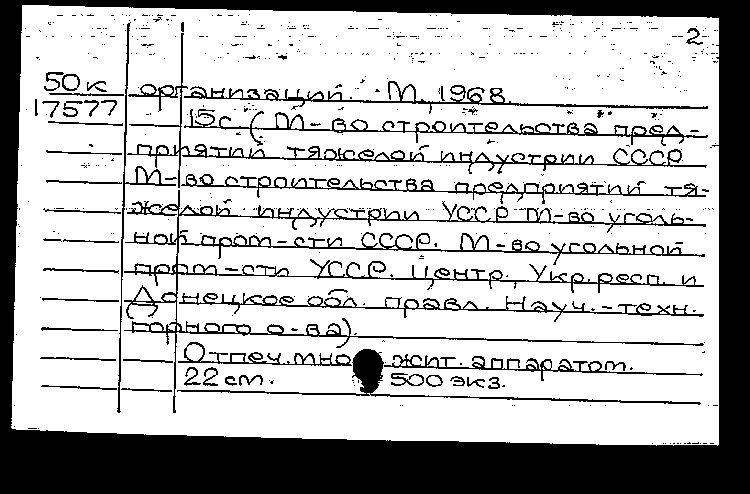 2
50к организаций. М., 1968.
17577 15с. (М-во строительства пред-
приятий тяжелой индустрии СССР
М-во строительства предприятий тя-
желой индустрии УССР М-во уголь-
ной пром-сти СССР. М-во угольной
пром-сти УССР. Центр., Укр.респ. и
Донецкое обл. правл. Науч.-техн.
горного о-ва).
Отпеч. мно жит. аппаратом.
22 см. 500 экз.